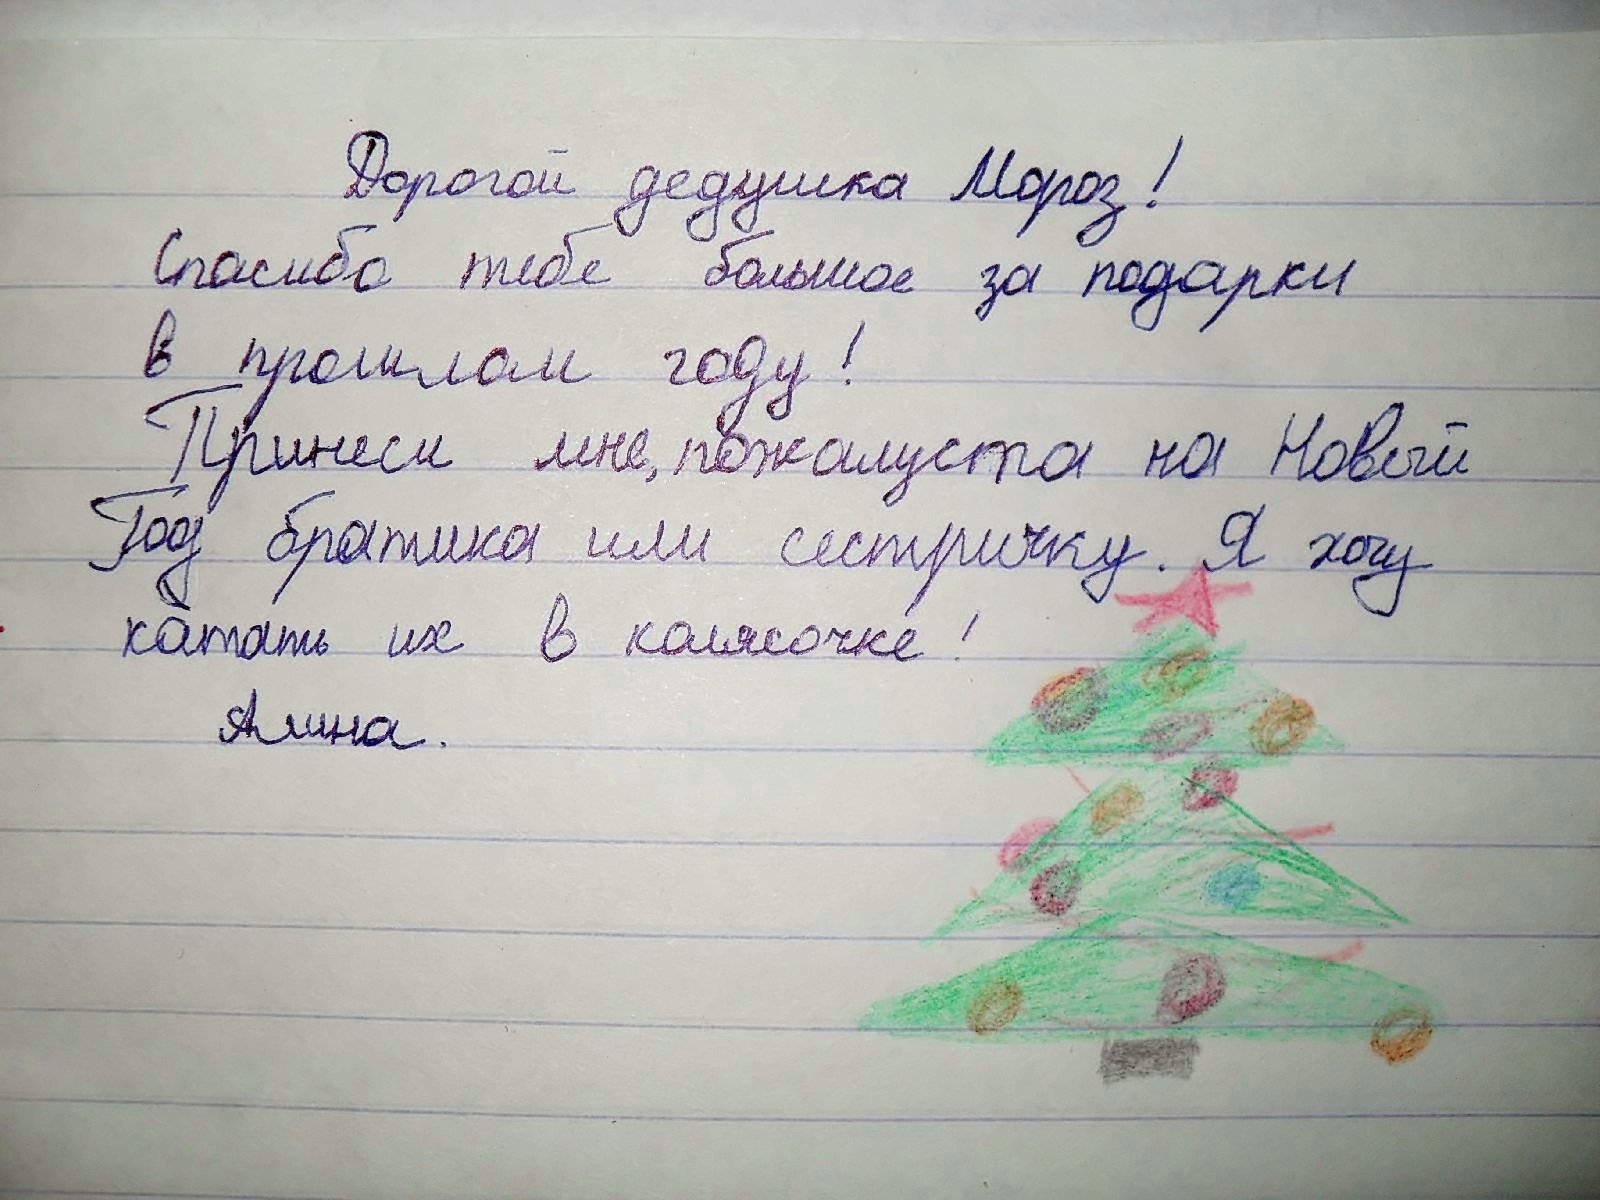 Дорогой дедушка Мороз!
Спасибо тебе большое за подарки
в прошлом году!
Принеси мне, пожалуста на Новый
Год братика или сестричку. Я хочу
катать их в колясочке!
Алина.